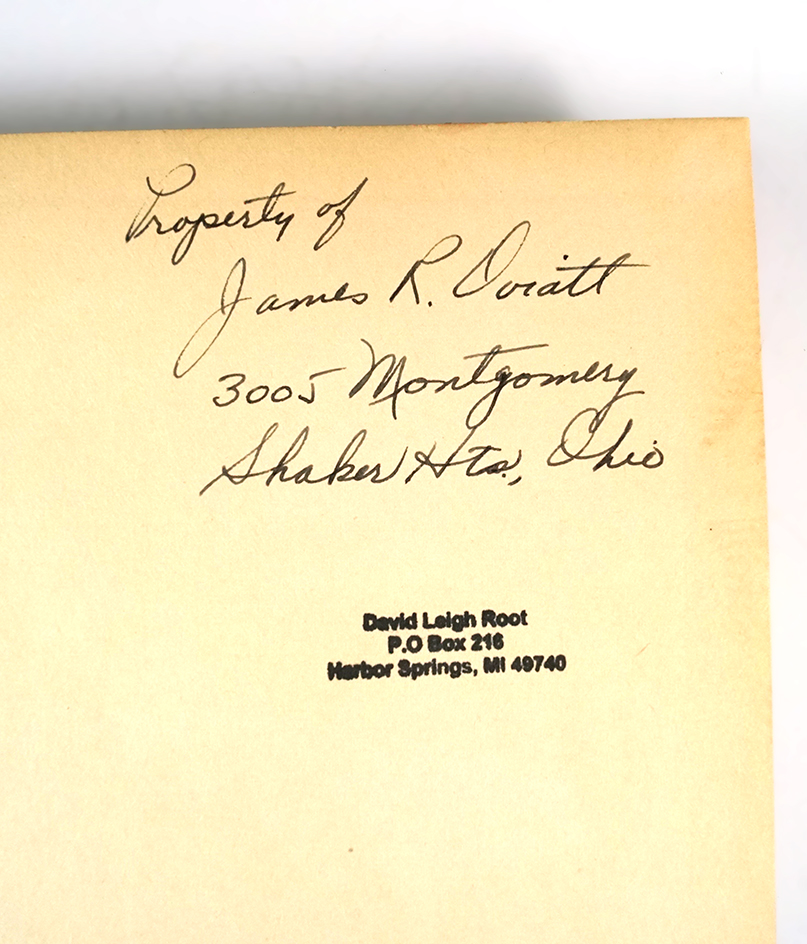 Property of
James R. Oviatt
3005 Montgomery
Shaker Hts., Ohio
David Leigh Root
P.O Box 216
Harbor Springs, MI 49740